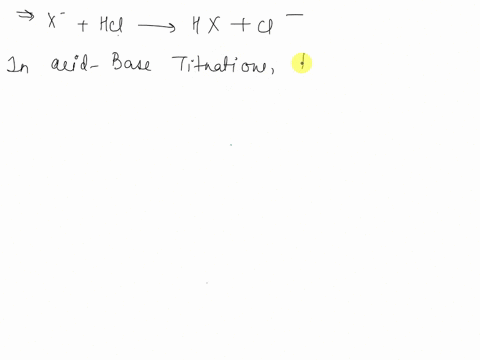 ⇒ X⁻ + HCl ⟶ HX + Cl⁻
In acid-Base Titrations,